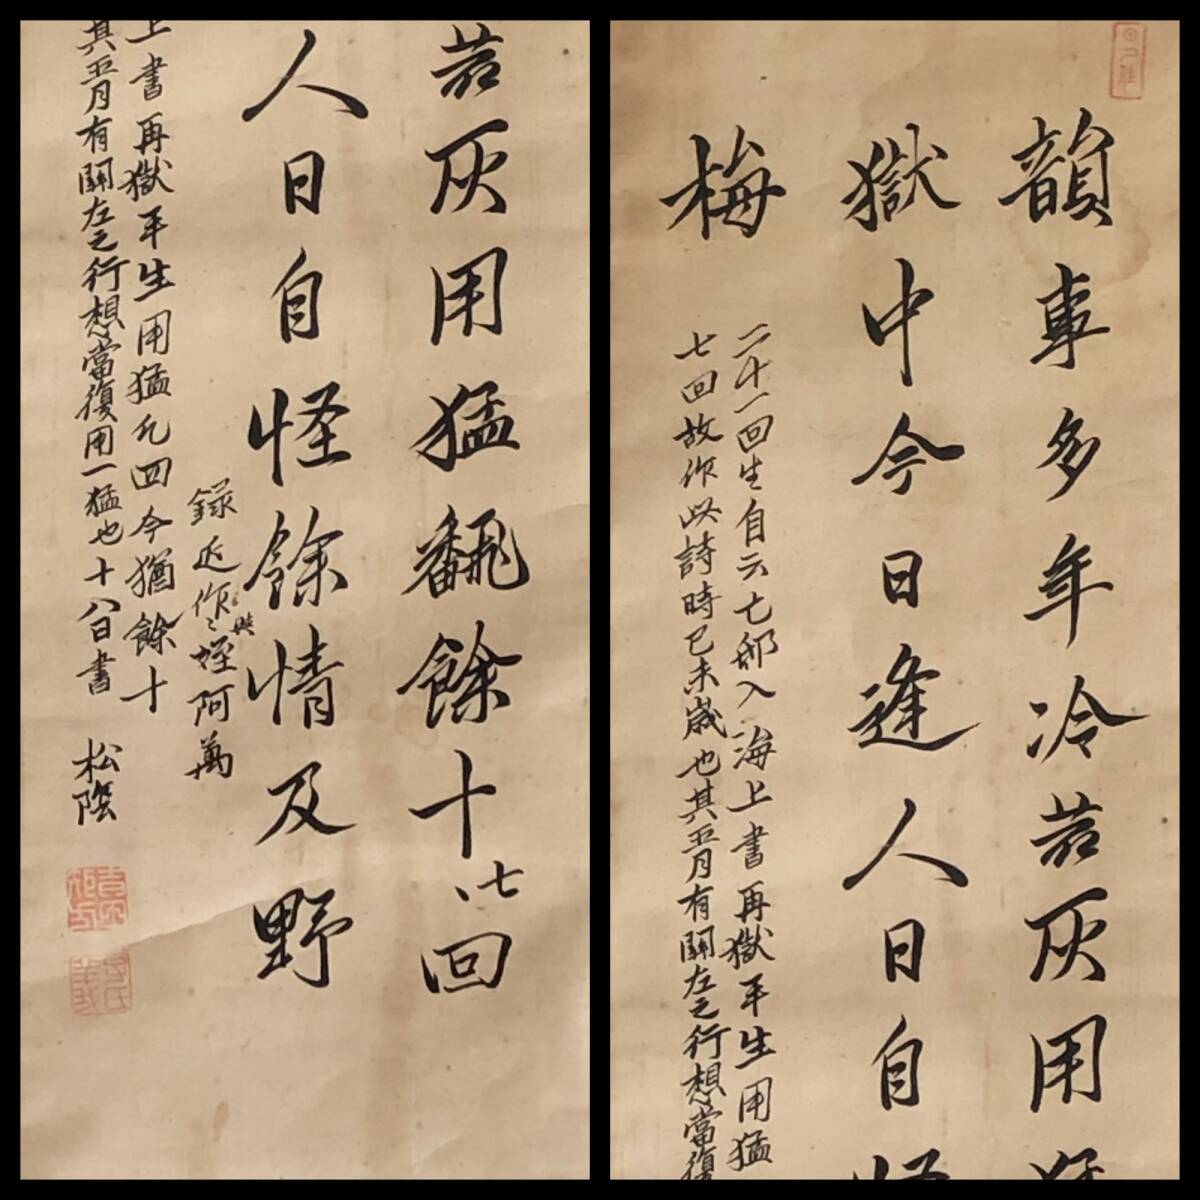 韻事多年冷若灰用猛
獄中今日逢人日自怪
梅
二十一回生自云亡邸入海上書再獄平生用猛
七回故作此詩時己未歲也其五月有關左之行想當復
若灰用猛飜餘十七回
人日自怪餘情及野
錄近作與姪阿萬
上書再獄平生用猛凡四今猶餘十
其五月有關左之行想當復用一猛也十八日書
松陰